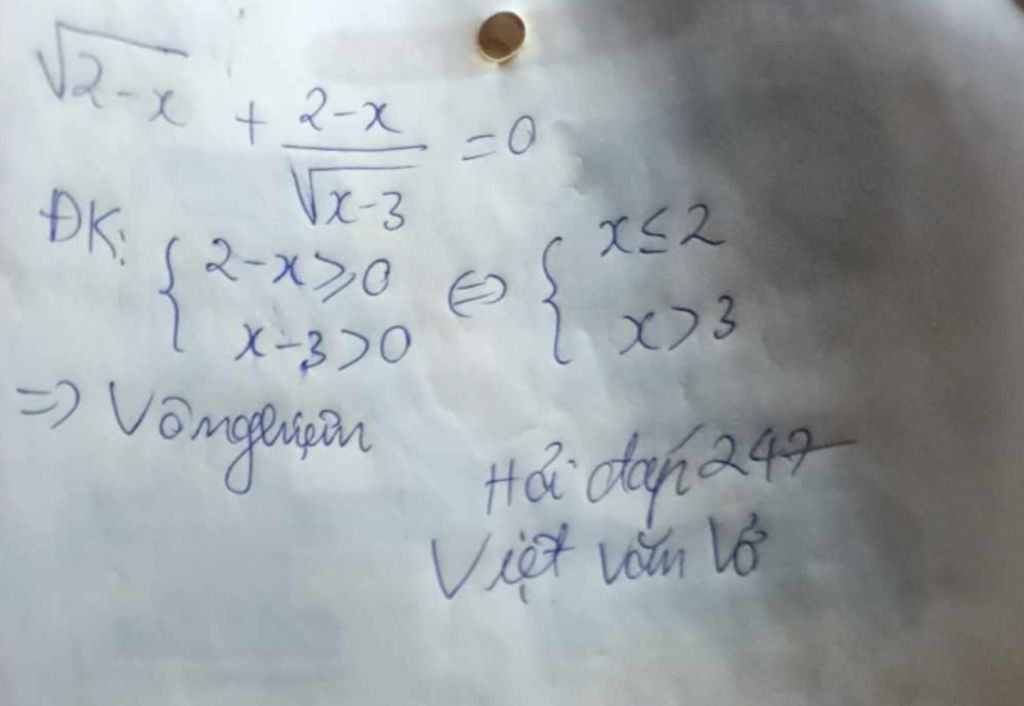 √2-x + 2-x/√x-3 = 0
ĐK: { 2-x ≥ 0 ⇔ { x ≤ 2
x-3 > 0 x > 3
=> Vô nghiệm
Hỏi đáp 247
Việt văn Vở